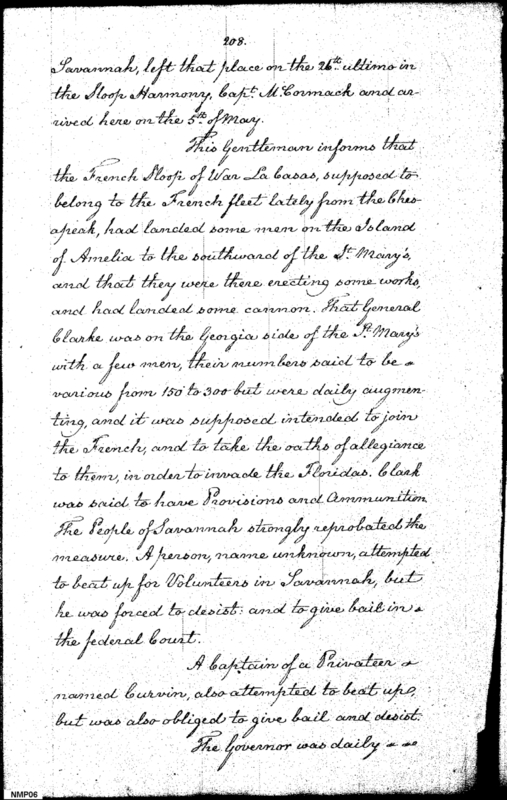 208.
Savannah, left that place on the 26th. ultimo in
the Sloop Harmony, Capt. McCormack and ar-
rived here on the 5th. of May.
This Gentleman informs that
the French Sloop of War La Casas, supposed to
belong to the French fleet lately from the Ches-
apeak, had landed some men on the Island
of Amelia to the southward of the St. Mary's,
and that they were there erecting some works,
and had landed some cannon. That General
Clarke was on the Georgia side of the St. Mary's
with a few men, their numbers said to be
various from 150 to 300 but were daily augmen-
ting, and it was supposed intended to join
the French, and to take the oaths of allegiance
to them, in order to invade the Floridas. Clark
was said to have Provisions and Ammunition.
The People of Savannah strongly reprobated the
measure. A person, name unknown, attempted
to beat up for Volunteers in Savannah, but
he was forced to desist: and to give bail in
the federal Court.
A Captain of a Privateer
named Curvin, also attempted to beat up,
but was also obliged to give bail and desist.
The Governor was daily
NMP06